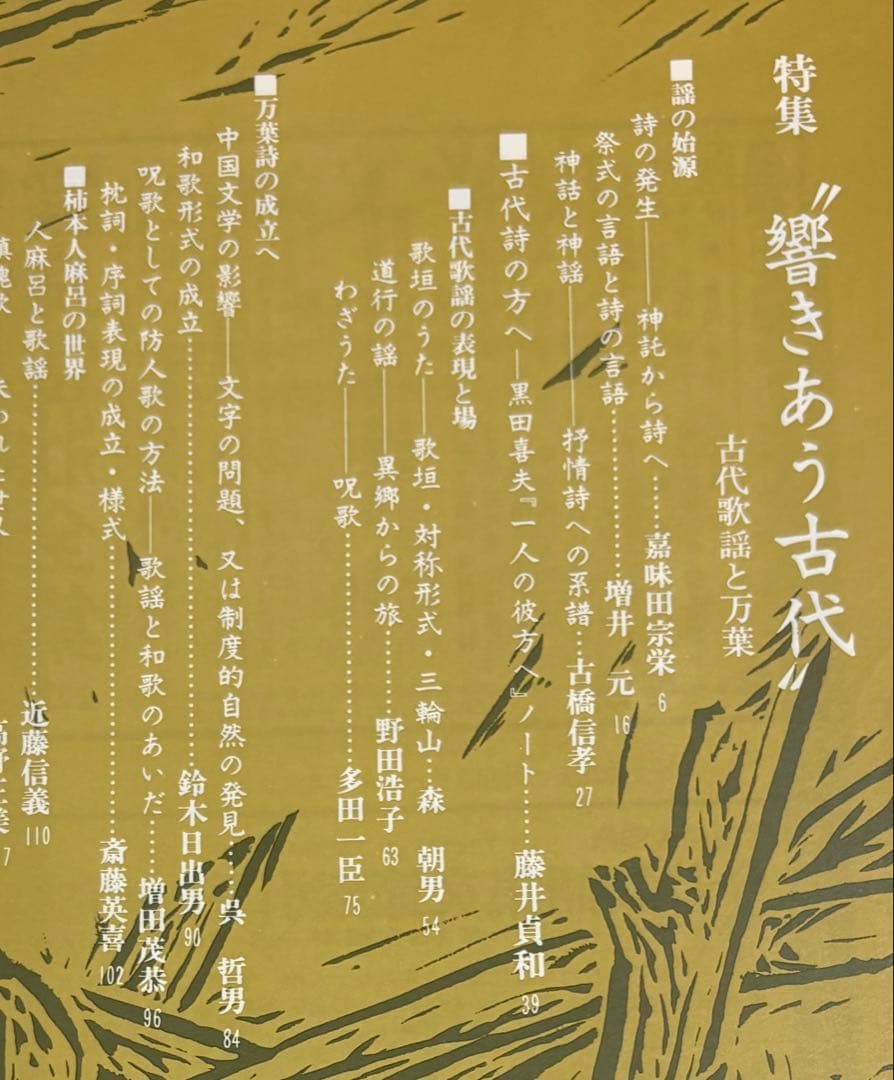 特集 〝響きあう古代〟
古代歌謡と万葉
■謡の始源
詩の発生――神託から詩へ……嘉味田宗栄 6
祭式の言語と詩の言語……………増井 元 16
神話と神謡――――抒情詩への系譜…古橋信孝 27
■古代詩の方へ―黒田喜夫『一人の彼方へ』ノート……藤井貞和 39
■古代歌謡の表現と場
歌垣のうた――――歌垣・対称形式・三輪山…森 朝男 54
道行の謡――――異郷からの旅…………野田浩子 63
わざうた――――呪歌………………多田一臣 75
■万葉詩の成立へ
中国文学の影響――文字の問題、又は制度的自然の発見……呉 哲男 84
和歌形式の成立…………………………鈴木日出男 90
呪歌としての防人歌の方法――歌謡と和歌のあいだ……増田茂恭 96
枕詞・序詞表現の成立・様式…………………斎藤英喜 102
■柿本人麻呂の世界
人麻呂と歌謡…………………近藤信義 110